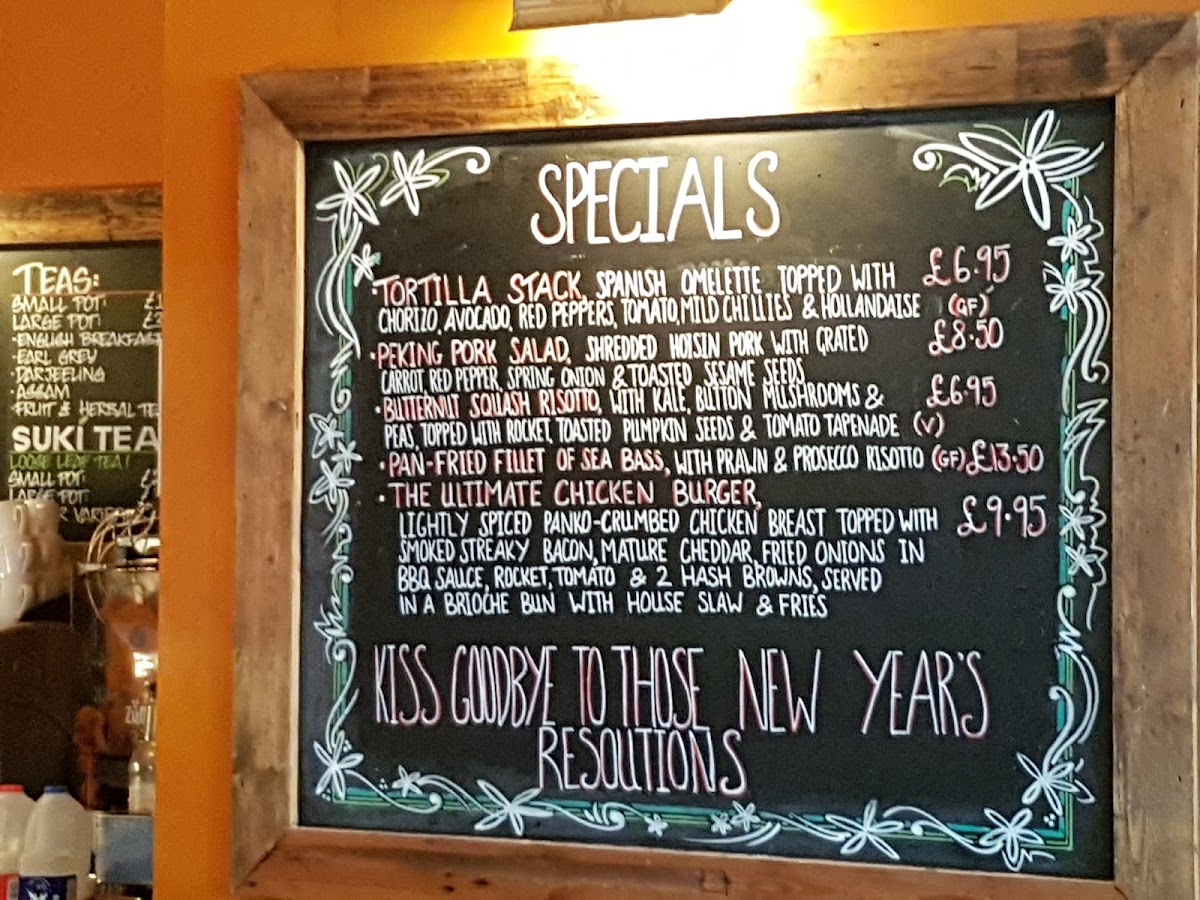 TEAS:
SMALL POT:
LARGE POT:
•ENGLISH BREAKFAST
•EARL GREY
•DARJEELING
•ASSAM
•FRUIT & HERBAL
SUKI TEA
LOOSE LEAF TEA!
SMALL POT:
LARGE POT:
SPECIALS
•TORTILLA STACK, SPANISH OMELETTE TOPPED WITH £6.95
CHORIZO, AVOCADO, RED PEPPERS, TOMATO, MILD CHILLIES & HOLLANDAISE (GF)
•PEKING PORK SALAD, SHREDDED HOISIN PORK WITH GRATED £8.50
CARROT, RED PEPPER, SPRING ONION & TOASTED SESAME SEEDS
•BUTTERNUT SQUASH RISOTTO, WITH KALE, BUTTON MUSHROOMS & £6.95
PEAS, TOPPED WITH ROCKET, TOASTED PUMPKIN SEEDS & TOMATO TAPENADE (V)
•PAN-FRIED FILLET OF SEA BASS, WITH PRAWN & PROSECCO RISOTTO (GF) £13.50
•THE ULTIMATE CHICKEN BURGER,
LIGHTLY SPICED PANKO-CRUMBED CHICKEN BREAST TOPPED WITH £9.95
SMOKED STREAKY BACON, MATURE CHEDDAR, FRIED ONIONS IN
BBQ SAUCE, ROCKET, TOMATO & 2 HASH BROWNS, SERVED
IN A BRIOCHE BUN WITH HOUSE SLAW & FRIES
KISS GOODBYE TO THOSE NEW YEAR'S
RESOUTIONS